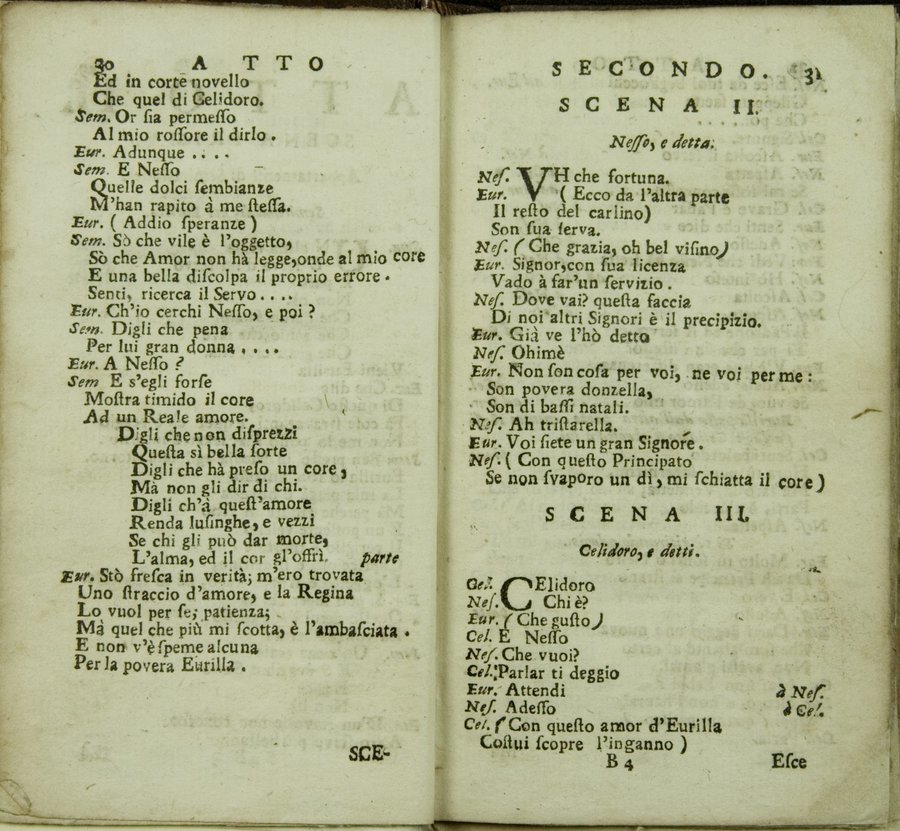 30 A T T O
Ed in corte novello
Che quel di Celidoro.
Sem. Or ſia permeſſo
Al mio roſſore il dirlo.
Eur. Adunque ....
Sem. E Neſſo
Quelle dolci ſembianze
M'han rapito à me ſteſſa.
Eur. ( Addio ſperanze )
Sem. Sò che vile è l'oggetto,
Sò che Amor non hà legge,onde al mio core
E una bella diſcolpa il proprio errore.
Senti, ricerca il Servo....
Eur. Ch'io cerchi Neſſo, e poi ?
Sem. Digli che pena
Per lui gran donna ....
Eur. A Neſſo ?
Sem E s'egli forſe
Moſtra timido il core
Ad un Reale amore.
Digli che non diſprezzi
Queſta sì bella ſorte
Digli che hà preſo un core,
Mà non gli dir di chi.
Digli ch'à queſt'amore
Renda luſinghe, e vezzi
Se chi gli può dar morte,
L'alma, ed il cor gl'offrì. parte
Eur. Stò freſca in verità; m'ero trovata
Uno ſtraccio d'amore, e la Regina
Lo vuol per ſe; patienza;
Mà quel che più mi ſcotta, è l'ambaſciata.
E non v'è ſpeme alcuna
Per la povera Eurilla.
SCE-
S E C O N D O. 31
S C E N A II.
Neſſo, e detta.
Neſ. VH che fortuna.
Eur. ( Ecco da l'altra parte
Il reſto del carlino)
Son ſua ſerva.
Neſ. ( Che grazia, oh bel viſino)
Eur. Signor,con ſua licenza
Vado à far'un ſervizio.
Neſ. Dove vai? queſta faccia
Di noi altri Signori è il precipizio.
Eur. Già ve l'hò detto
Neſ. Ohimè
Eur. Non ſon coſa per voi, ne voi per me:
Son povera donzella,
Son di baſſi natali.
Neſ. Ah triſtarella.
Eur. Voi ſiete un gran Signore.
Neſ. ( Con queſto Principato
Se non ſvaporo un dì, mi ſchiatta il core)
S C E N A III.
Celidoro, e detti.
Cel. CElidoro
Neſ. Chi è?
Eur. ( Che guſto)
Cel. E Neſſo
Neſ. Che vuoi?
Cel. Parlar ti deggio
Eur. Attendi à Neſ.
Neſ. Adeſſo à Cel.
Cel. ( Con queſto amor d'Eurilla
Coſtui ſcopre l'inganno )
B 4 Eſce